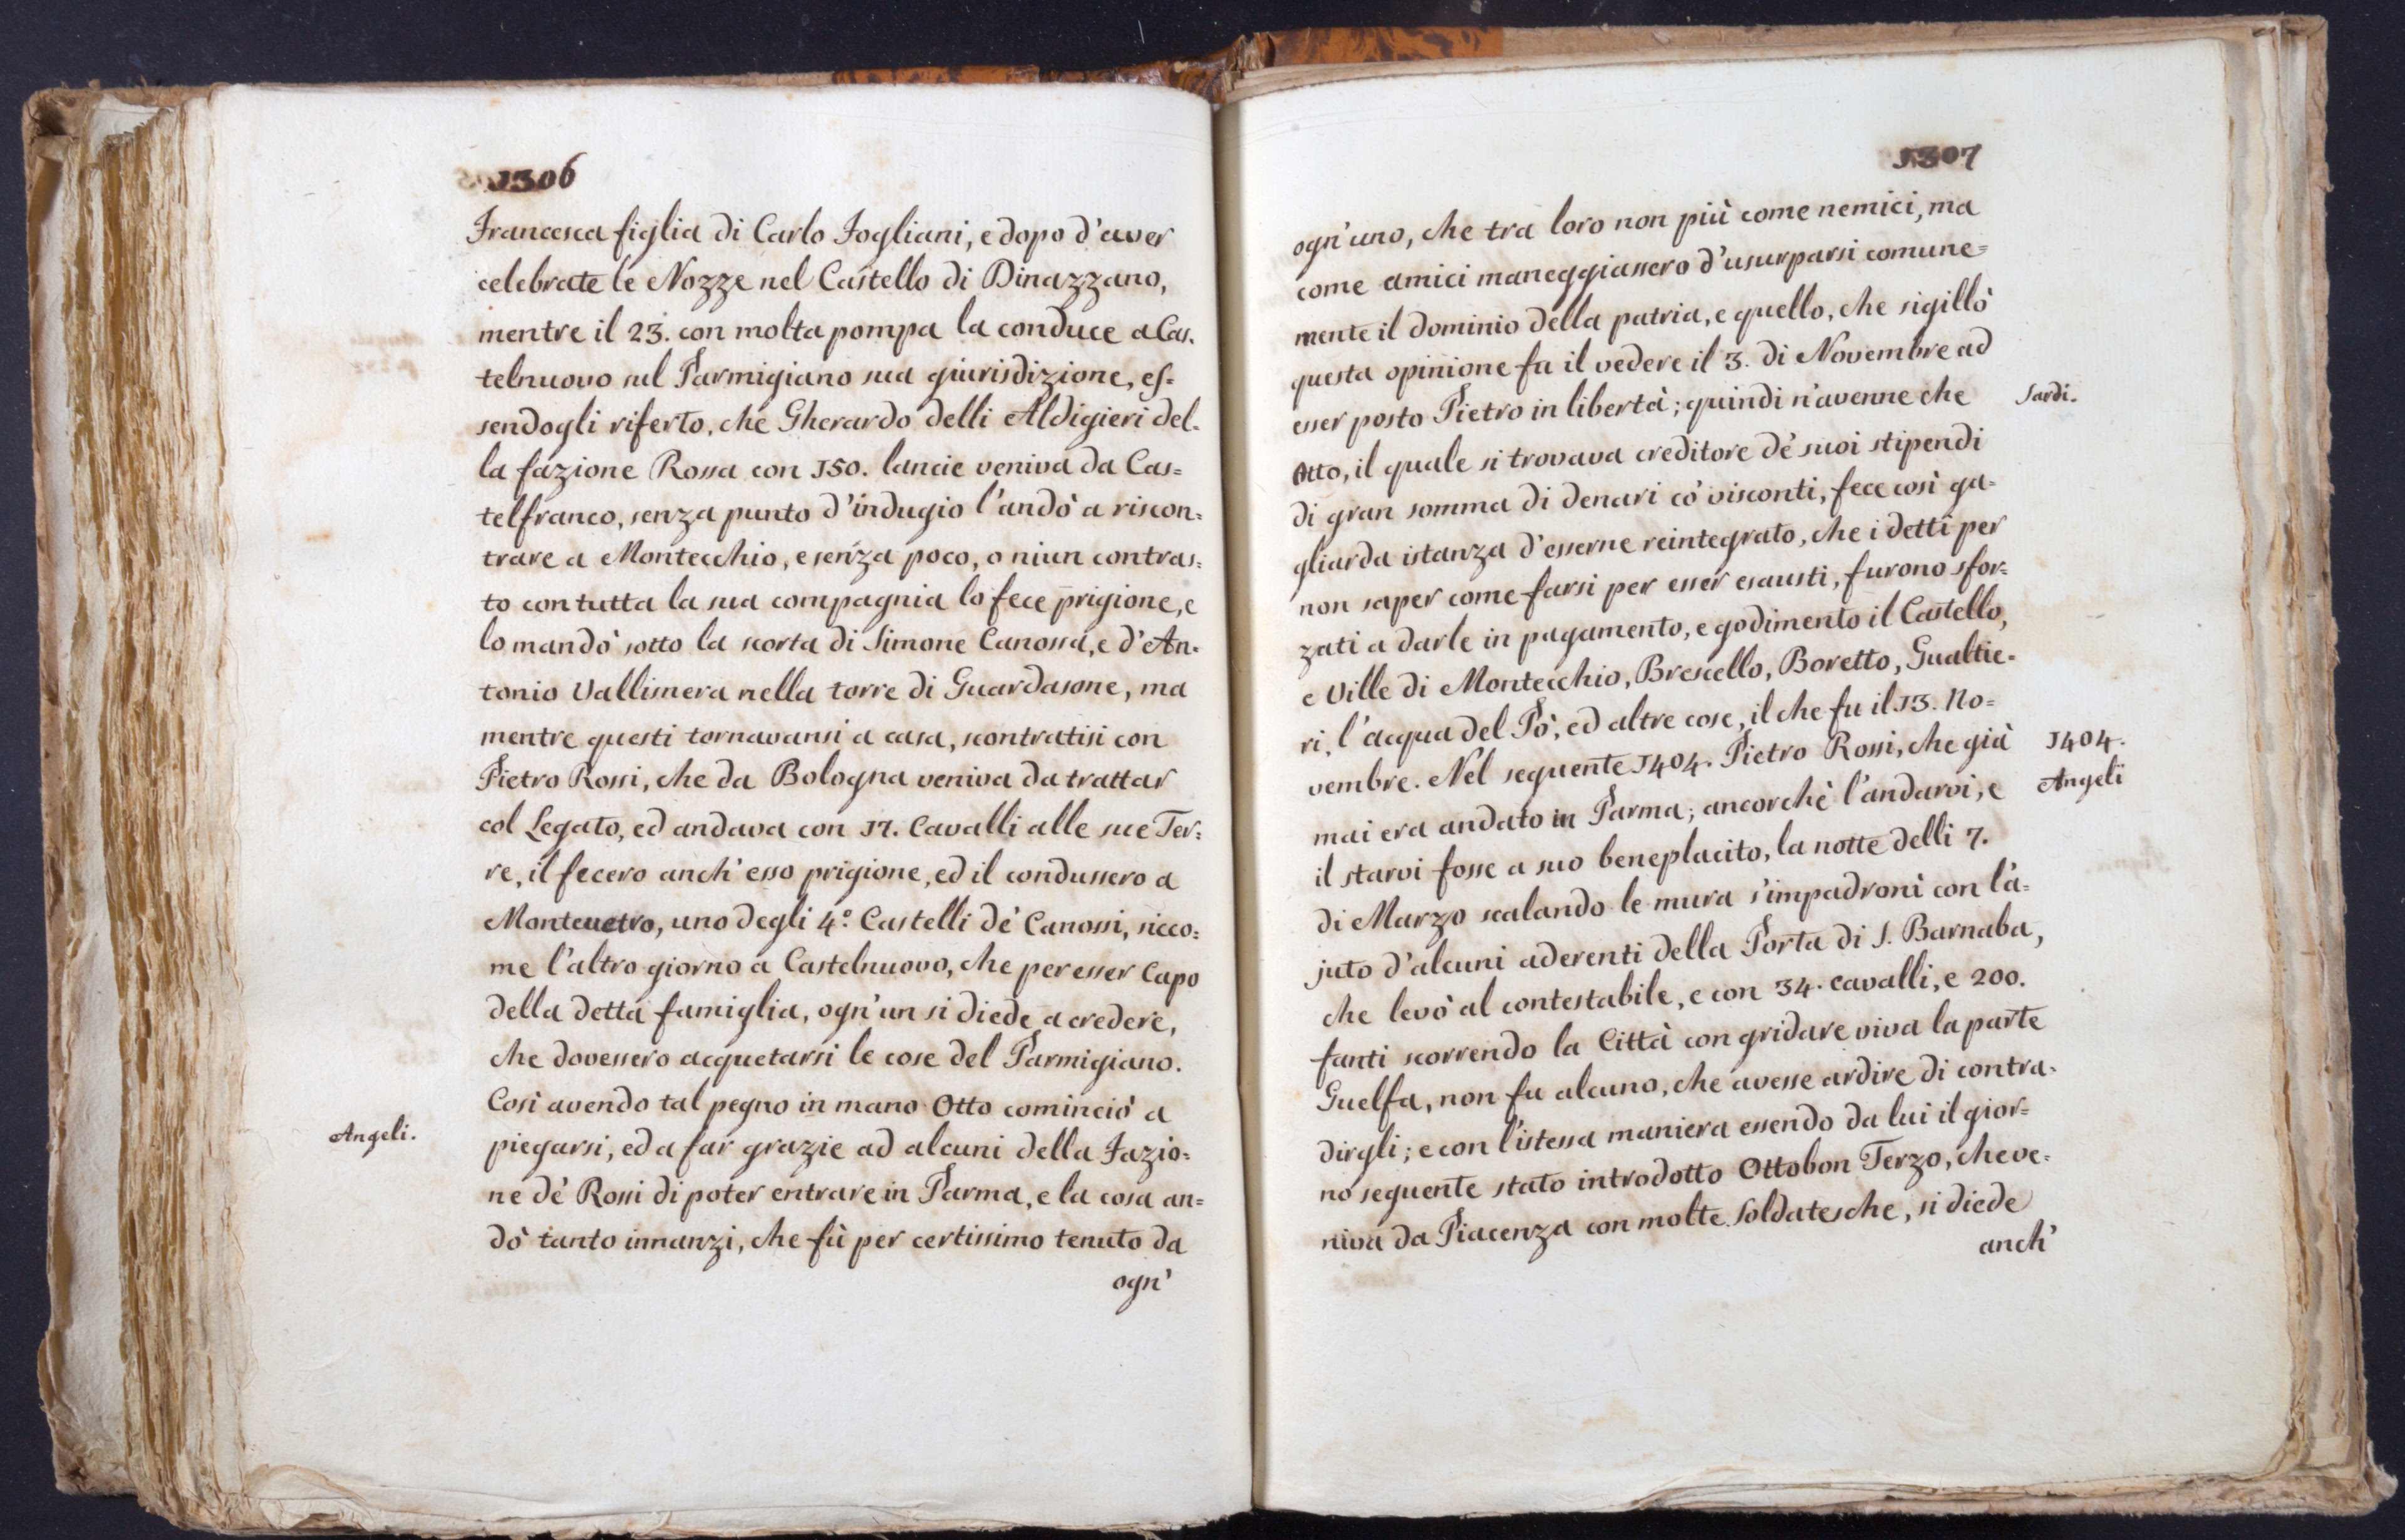 1306
Francesca figlia di Carlo Fogliani, e dopo d'aver
celebrate le Nozze nel Castello di Dinazzano,
mentre il 23. con molta pompa la conduce a Cas.
telnuovo sul Parmigiano sua giurisdizione, es=
sendogli riferto, che Gherardo delli Aldigieri del=
la fazione Rossa con 150. lancie veniva da Cas=
telfranco, senza punto d'indugio l'andò a riscon=
trare a Montecchio, e senza poco, o niun contras=
to con tutta la sua compagnia lo fece prigione, e
lo mandò sotto la scorta di Simone Canossa, e d'An=
tonio Vallisnera nella torre di Guardasone, ma
mentre questi tornavansi a casa, scontratisi con
Pietro Rossi, che da Bologna veniva da trattar
col Legato, ed andava con 17. Cavalli alle sue Ter=
re, il fecero anch'esso prigione, ed il condussero a
Montevetro, uno degli 4.º Castelli dè Canossi, sicco=
me l'altro giorno a Castelnuovo, che per esser Capo
della detta famiglia, ogn'un si diede a credere,
che dovessero acquetarsi le cose del Parmigiano.
Così avendo tal pegno in mano Otto cominciò a
Angeli.
piegarsi, ed a far grazie ad alcuni della Fazio=
ne dè Rossi di poter entrare in Parma, e la cosa an=
dò tanto innanzi, che fù per certissimo tenuto da
ogn'
1307
ogn'uno, che tra loro non più come nemici, ma
come amici maneggiassero d'usurparsi comune=
mente il dominio della patria, e quello, che sigillò
questa opinione fu il vedere il 3. di Novembre ad
esser posto Pietro in libertà; quindi n'avenne che
Sardi.
Otto, il quale si trovava creditore dè suoi stipendi
di gran somma di denari cò visconti, fece così ga=
gliarda istanza d'esserne reintegrato, che i detti per
non saper come farsi per esser esausti, furono sfor=
zati a darle in pagamento, e godimento il Castello,
e Ville di Montecchio, Brescello, Boretto, Gualtie=
ri, l'acqua del Pò, ed altre cose, il che fu il 13. No=
vembre. Nel seguente 1404. Pietro Rossi, che già
1404.
mai era andato in Parma; ancorchè l'andarvi, e
Angeli
il starvi fosse a suo beneplacito, la notte delli 7.
di Marzo scalando le mura s'impadronì con l'a=
juto d'alcuni aderenti della Porta di S. Barnaba,
che levò al contestabile, e con 34. cavalli, e 200.
fanti scorrendo la Città con gridare viva la parte
Guelfa, non fu alcuno, che avesse ardire di contra=
dirgli; e con l'istessa maniera essendo da lui il gior=
no seguente stato introdotto Ottobon Terzo, che ve=
niva da Piacenza con molte Soldatesche, si diede
anch'